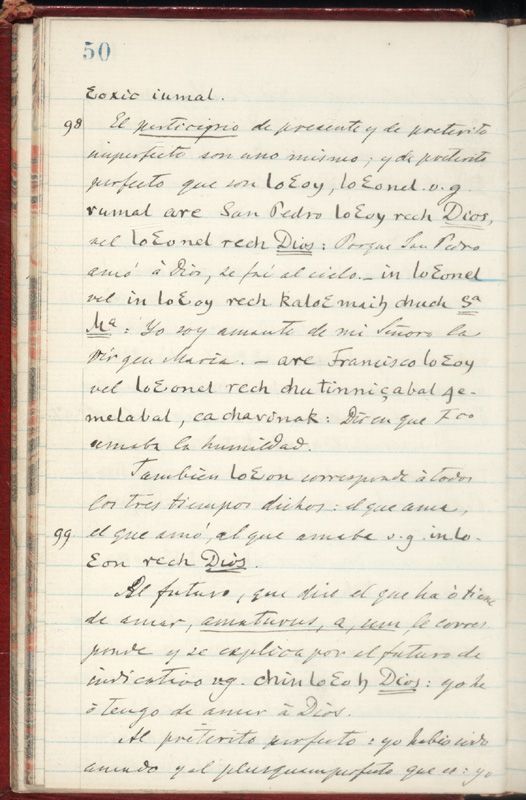 50
Ɛoxic iumal.
98 El participio de presente y de preterito
imperfecto son uno mismo; y de preterito
perfecto que son loƐoy, loƐonel. v.g.
rumal are San Pedro loƐoy rech Dios,
vel loƐonel rech Dios: Porque San Pedro
amó à Dios, se fué al cielo. – in loƐonel
vel in loƐoy rech kaloƐmaih chuch Sª
Mª: Yo soy amante de mi Señora la
Virgen Maria. – are Francisco loƐoy
vel loƐonel rech chutinniçabal 4e-
melabal, cachavinak: Dicen que Fco
amaba la humildad.
Tambien loƐon corresponde à todos
los tres tiempos dichos: el que ama,
99 el que amó, al que amaba v.g. in lo-
Ɛon rech Dios.
Al futuro, que dice el que ha ò tiene
de amar, amaturus, a, um, le corres
ponde y se explica por el futuro de
indicativo vg. chin loƐoh Dios: yo he
ò tengo de amar à Dios.
Al préterito perfecto: yo habia sido
amado y al plusquamperfecto que es: yo